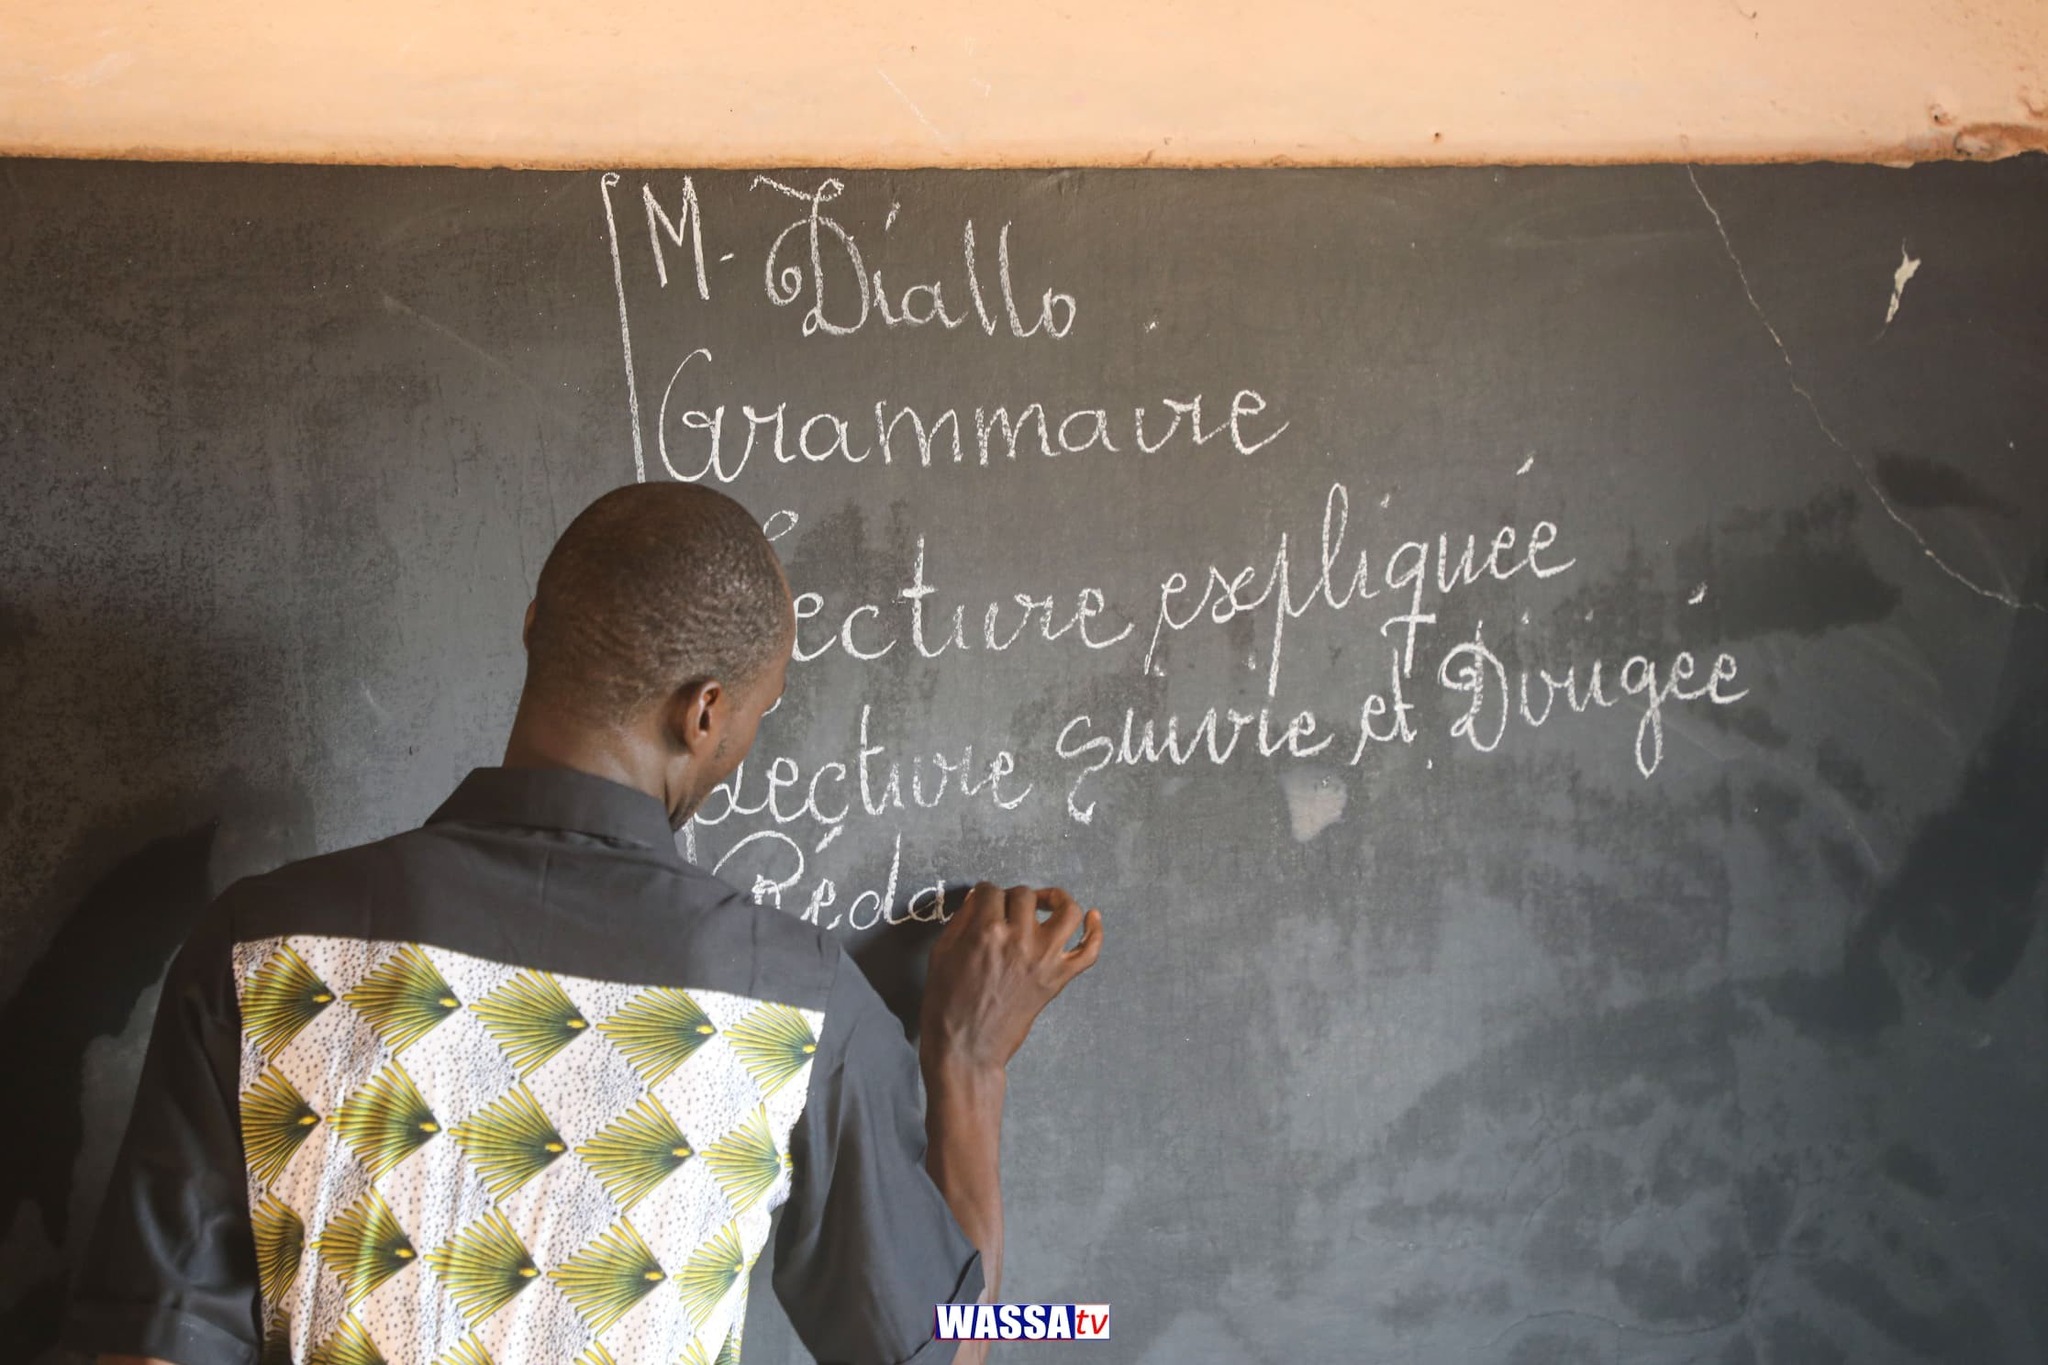 M. Diallo
Grammaire
Lecture expliquée
Lecture Suivie et Dirigée
Réda
WASSA tv